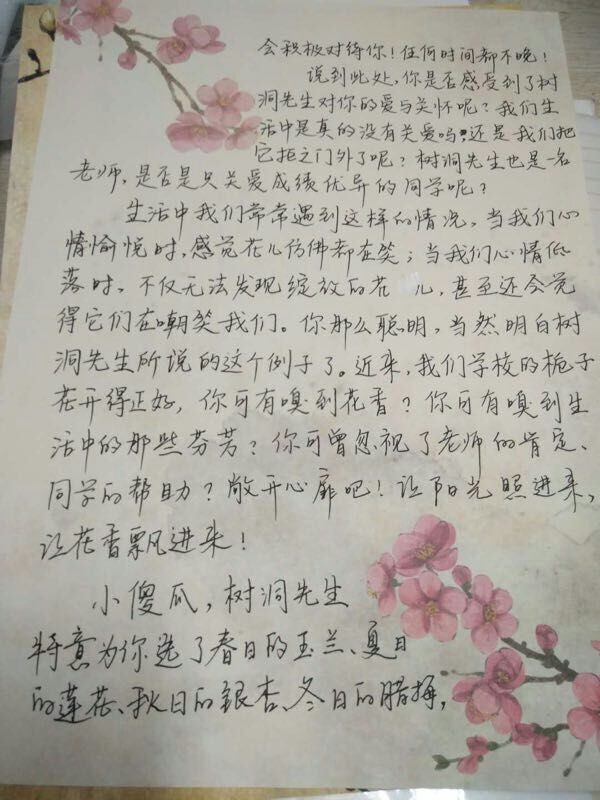 会积极对待你！任何时间都不晚！
说到此处，你是否感受到了树
洞先生对你的爱与关怀呢？我们生
活中是真的没有关爱吗？还是我们把
它拒之门外了呢？树洞先生也是一名
老师，是否是只关爱成绩优异的同学呢？
生活中我们常常遇到这样的情况，当我们心
情愉悦时，感觉花儿仿佛都在笑；当我们心情低
落时，不仅无法发现绽放的花儿，甚至还会觉
得它们在嘲笑我们。你那么聪明，当然明白树
洞先生所说的这个例子了。近来，我们学校的栀子
花开得正好，你可有嗅到花香？你可有嗅到生
活中的那些芬芳？你可曾忽视了老师的肯定、
同学的帮助？敞开心扉吧！让阳光照进来，
让花香飘进来！
小傻瓜，树洞先生
特意为你选了春日的玉兰、夏日
的莲花、秋日的银杏、冬日的腊梅，